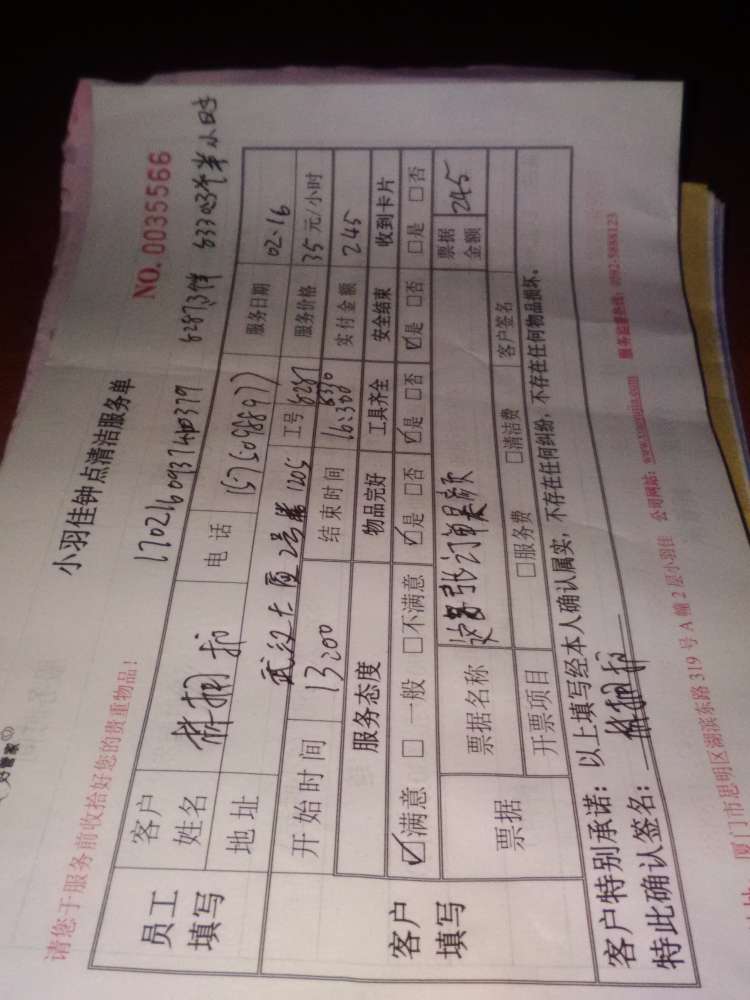 请您于服务前收拾好您的贵重物品!
小羽佳钟点清洁服务单
NO. 0035566
员工填写
客户姓名 电话 服务日期 02.16
地址 武汉大厦2号楼1205 工号 6287 服务价格 35元/小时
开始时间 13:00 结束时间 16:30 实付金额 245
客户填写
服务态度 物品完好 工具齐全 安全结束 收到卡片
☑满意 □一般 □不满意 ☑是 □否 ☑是 □否 ☑是 □否 □是 □否
票据 票据名称 这张订单 票据金额 245
开票项目 □服务费 □清洁费 客户签名
客户特别承诺:以上填写经本人确认属实,不存在任何纠纷,不存在任何物品损坏。
特此确认签名:
厦门市思明区湖滨东路319号A幢2层小羽佳 公司网站: 服务监督热线:0592-5888123